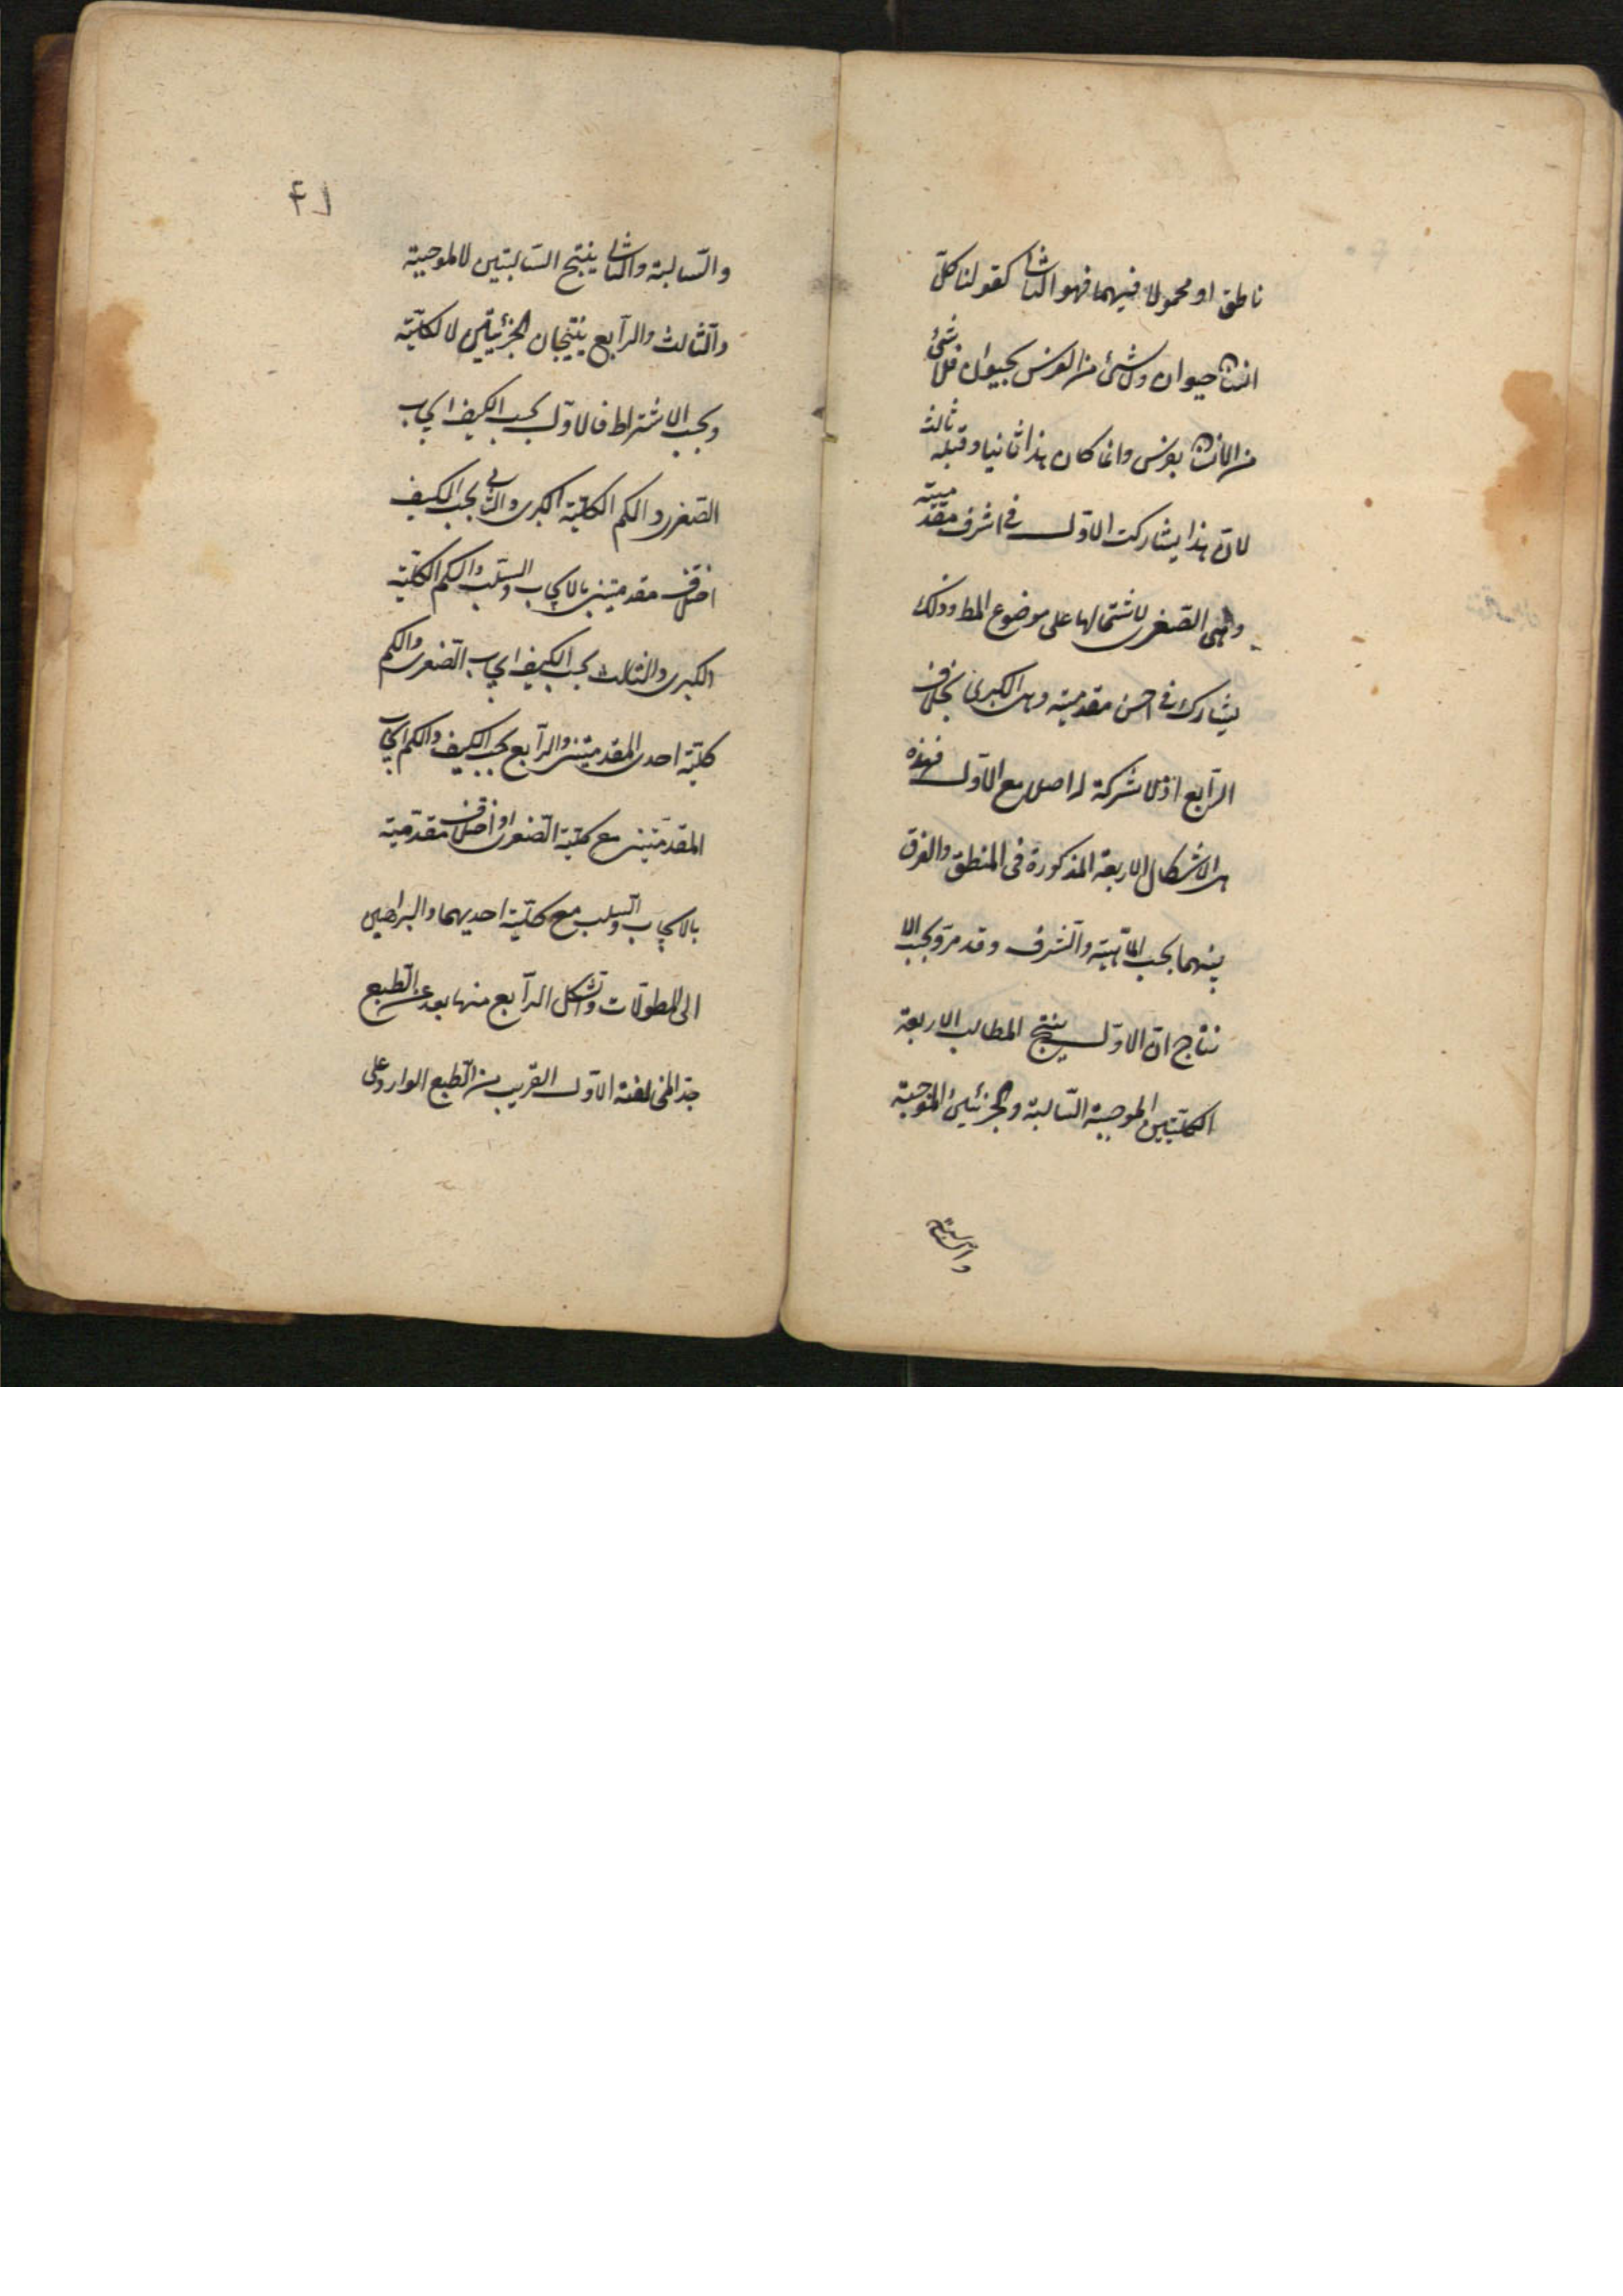 ناطق او محمولا فيهما فهو الثانى كقولنا كلّ
انسان حيوان ولا شئ من الفرس بحيوان فلا شئ
من الانسان بفرس وانما كان هذا ثانيا وقبله ثالث
لانّ هذا يشاركت الاوّل فى اشرف مقدّميته
وهى الصّغرى لاشتمالها على موضوع المط وذلك
يشارك فى احسن مقدميته وهى الكبرى بخلاف
الرّابع اذ لا شركة له اصلا مع الاوّل فهذه
هى الاشكال الاربعة المذكورة فى المنطق والفرق
بينهما بحسب الماهيّة والشّرف وقد مرّ وبحسب الا
نتاج انّ الاوّل ينتج المطالب الاربعة
الكلّيتين الموجبة السّالبة والجزئيتين الموجبة
والسّالبة
٤١
والسّالبة والثانى ينتج السّالبتين لا الموجبة
والثّالث والرّابع ينتجان الجزئيّتين لا الكليّة
وبحسب الاشتراط فالاوّل بحسب الكيف ايجاب
الصّغرى والكم الكليّة الكبرى والثانى بحسب الكيف
اختلاف مقدميتين بالايجاب والسّلب والكم الكليّة
الكبرى والثالث بحسب الكيف ايجاب الصّغرى والكم
كليّة احدى المقدميتين والرّابع بحسب الكيف والكم ايجاب
المقدّميتين مع كليّة الصّغرى او اختلاف مقدّميته
بالايجاب والسّلب مع كلّيّة احديهما والبراهين
الى المطوّلات والشّكل الرّابع منها بعد عن الطّبع
جدّا لمخالفته الاوّل القريب من الطّبع الوارد على